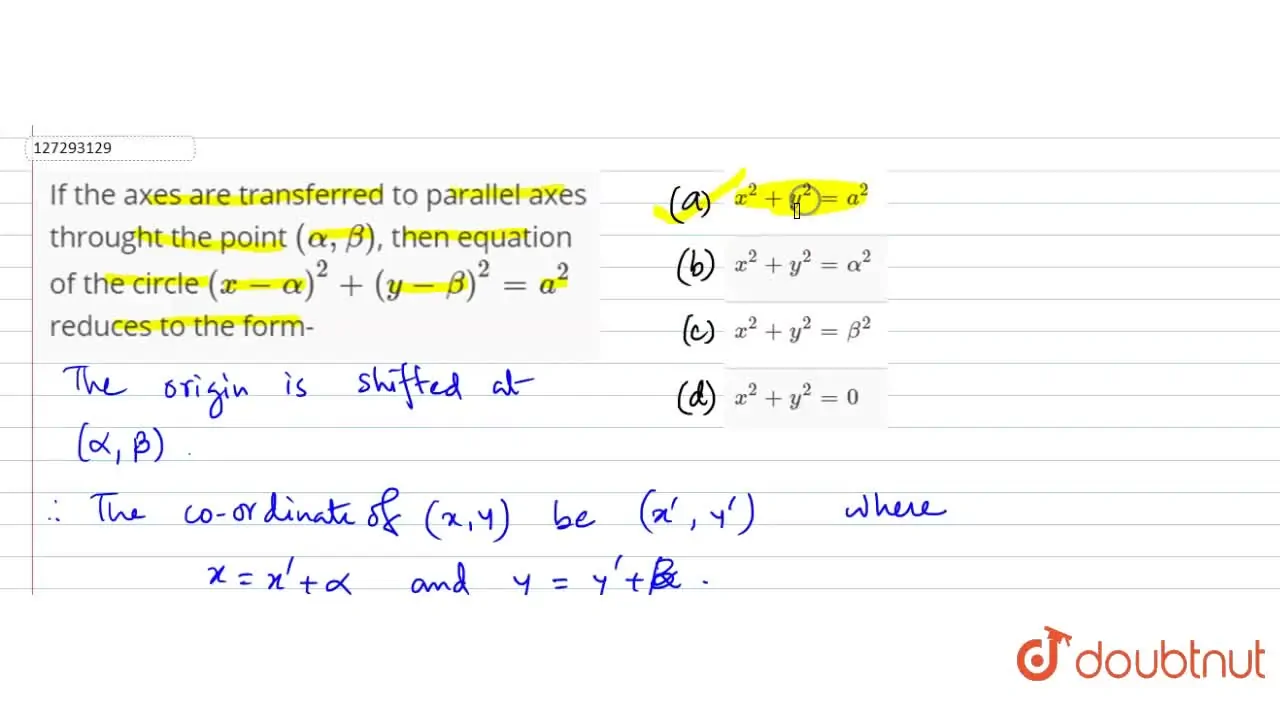 127293129
If the axes are transferred to parallel axes
throught the point (α, β), then equation
of the circle (x − α)² + (y − β)² = a²
reduces to the form-
(a) x² + y² = a²
(b) x² + y² = α²
(c) x² + y² = β²
(d) x² + y² = 0
The origin is shifted at
(α, β) .
∴ The co-ordinate of (x, y) be (x′, y′) where
x = x′ + α and y = y′ + β .
doubtnut